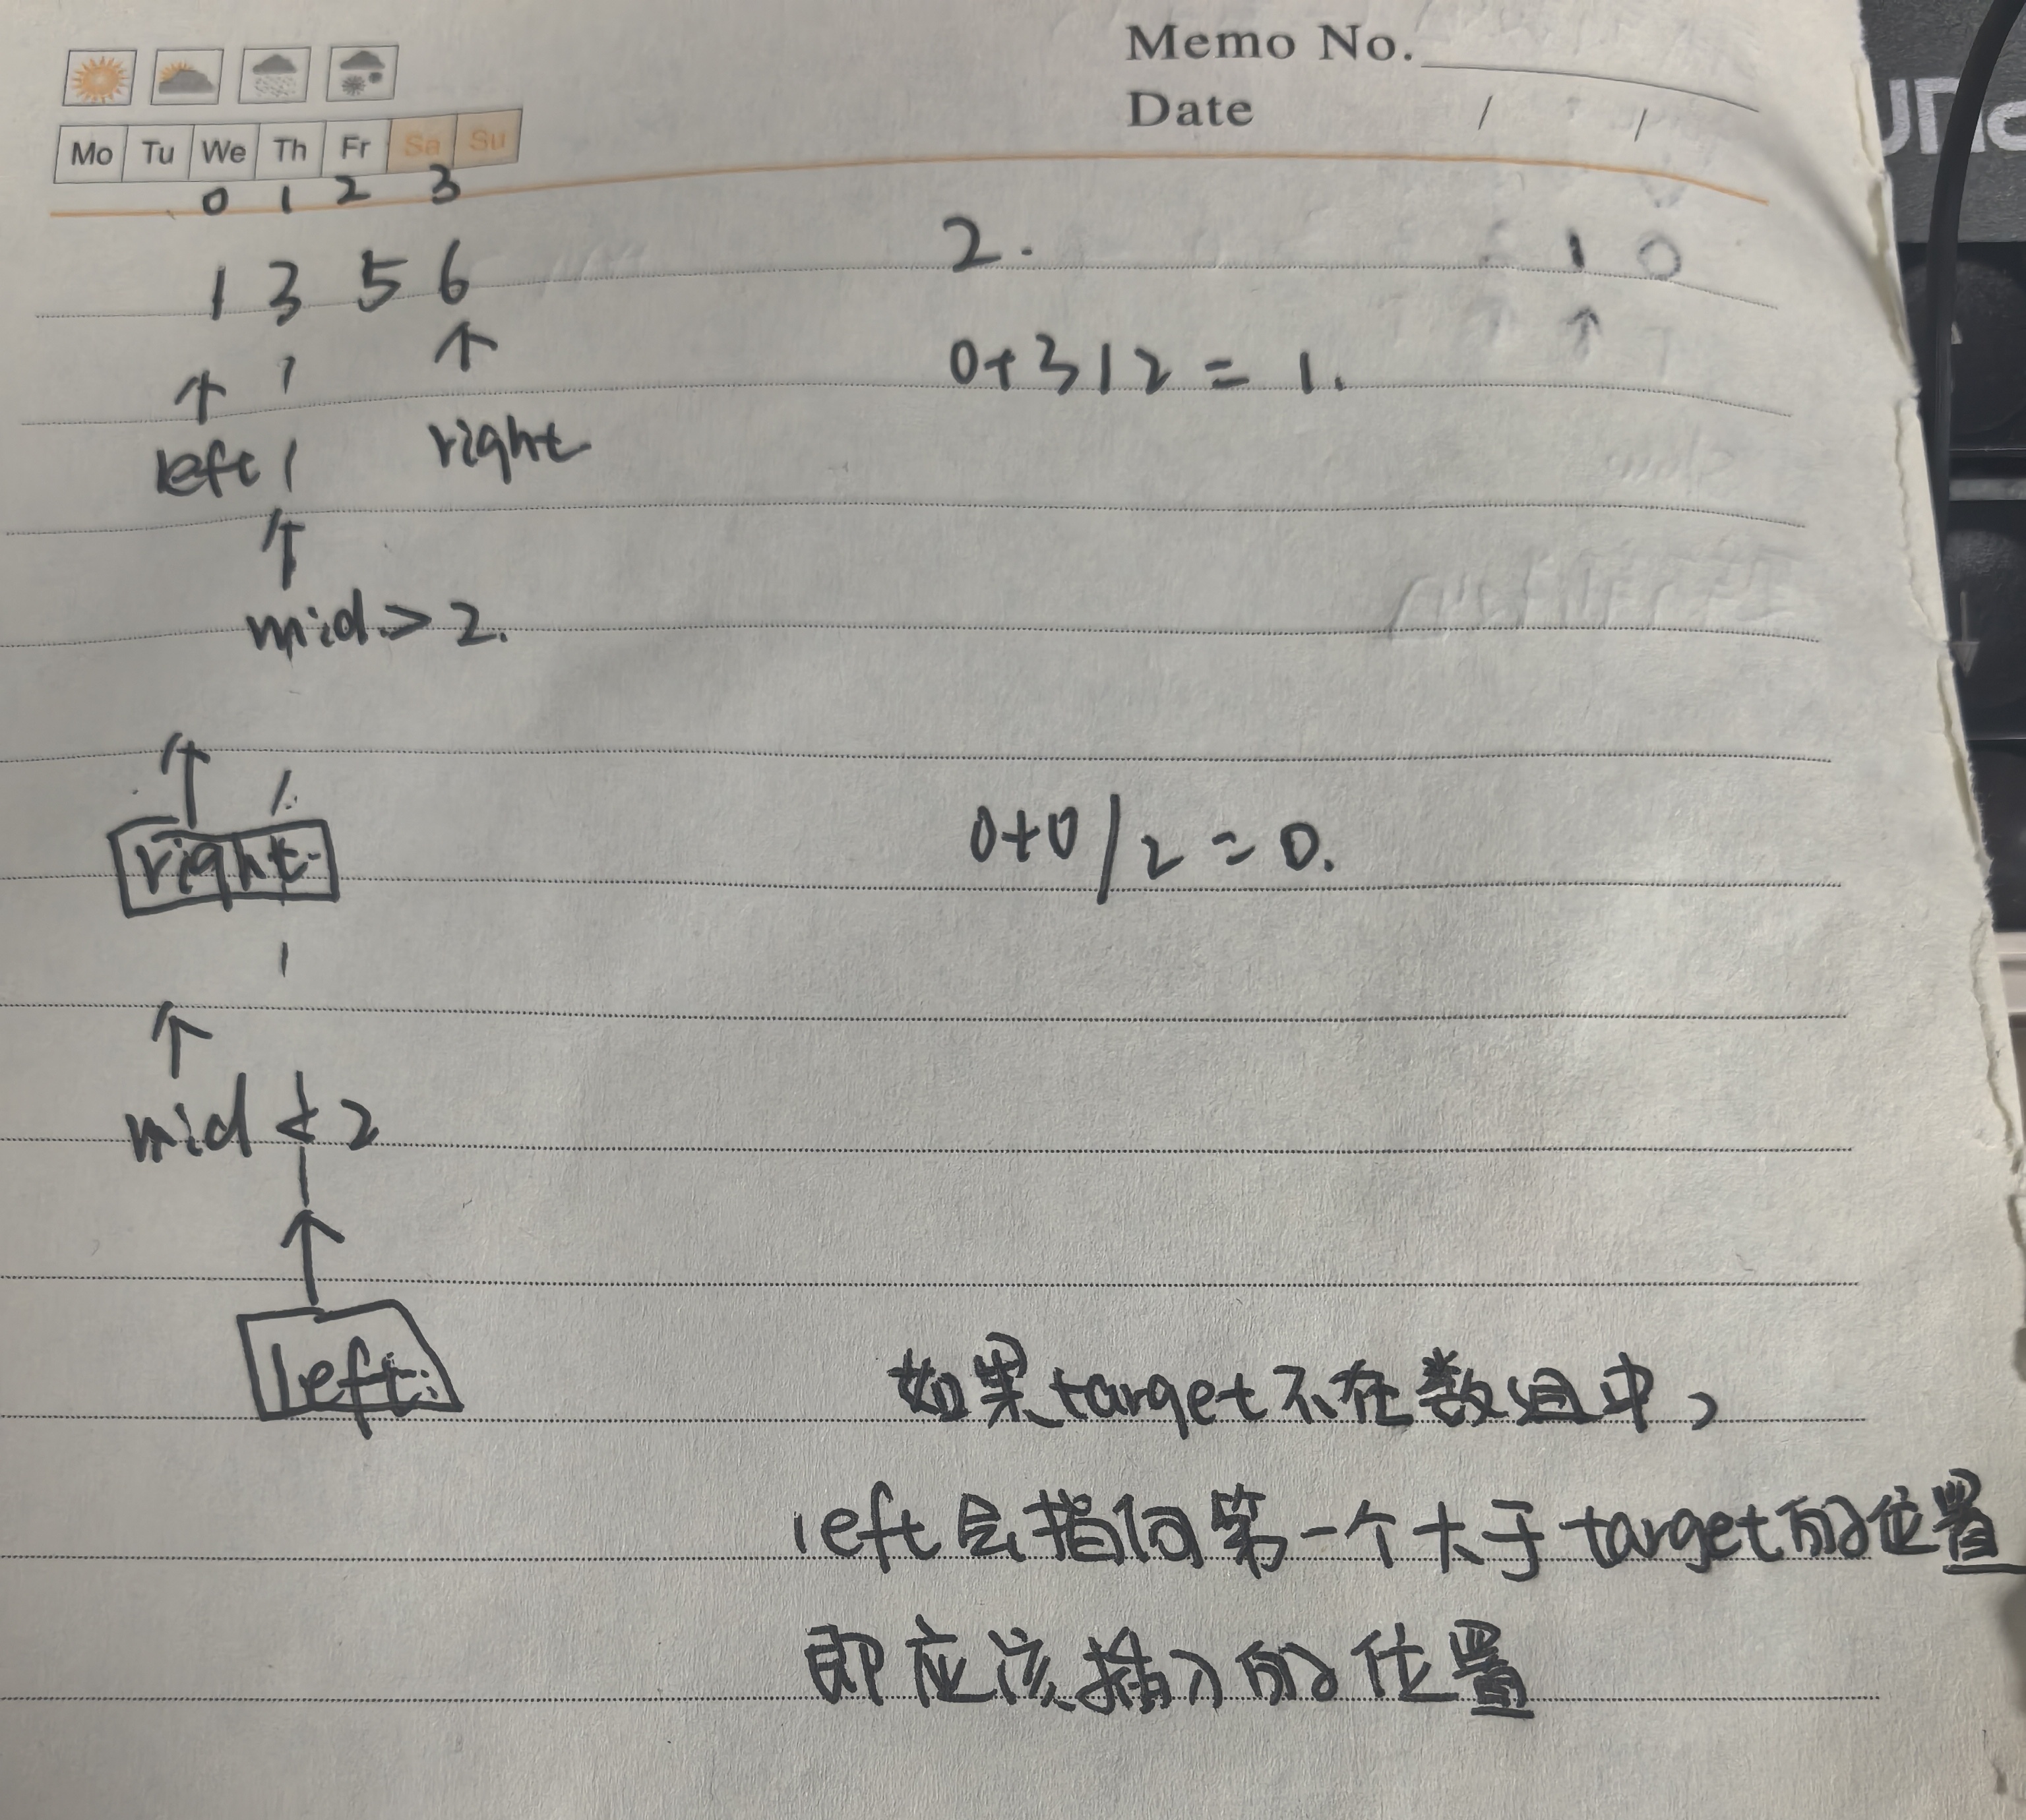 Memo No.
Date / /
Mo Tu We Th Fr Sa Su
0 1 2 3
1 3 5 6
2.
1 0
0+3/2=1.
left
right
mid>2.
right
0+0/2=0.
mid<2
left
如果target不在数组中,
left会指向第一个大于target的位置
即应该插入的位置